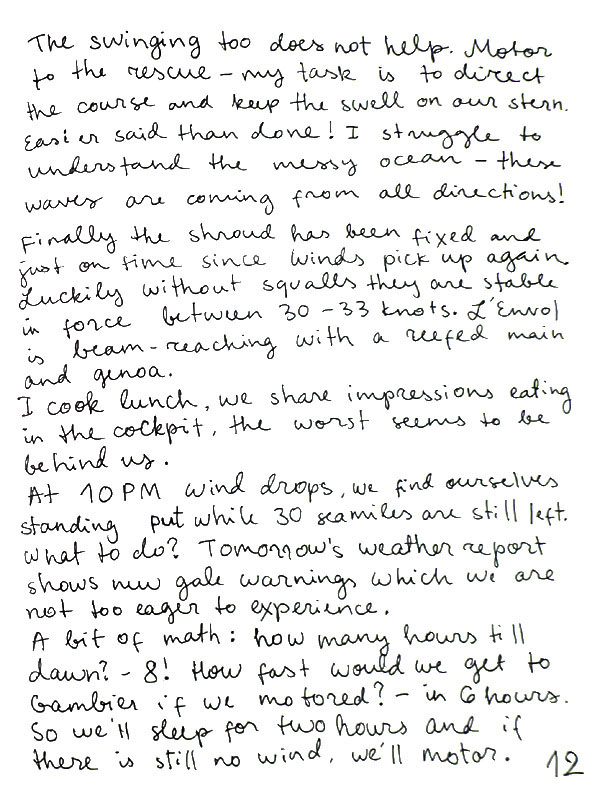 The swinging too does not help. Motor
to the rescue – my task is to direct
the course and keep the swell on our stern.
Easier said than done! I struggle to
understand the messy ocean – these
waves are coming from all directions!
Finally the shroud has been fixed and
just on time since winds pick up again.
Luckily without squalls they are stable
in force between 30 – 33 knots. L'Envol
is beam-reaching with a reefed main
and genoa.
I cook lunch, we share impressions eating
in the cockpit, the worst seems to be
behind us.
At 10 PM wind drops, we find ourselves
standing put while 30 seamiles are still left.
What to do? Tomorrow's weather report
shows new gale warnings which we are
not too eager to experience.
A bit of math: how many hours till
dawn? – 8! How fast would we get to
Gambier if we motored? – in 6 hours.
So we'll sleep for two hours and if
there is still no wind, we'll motor.
12